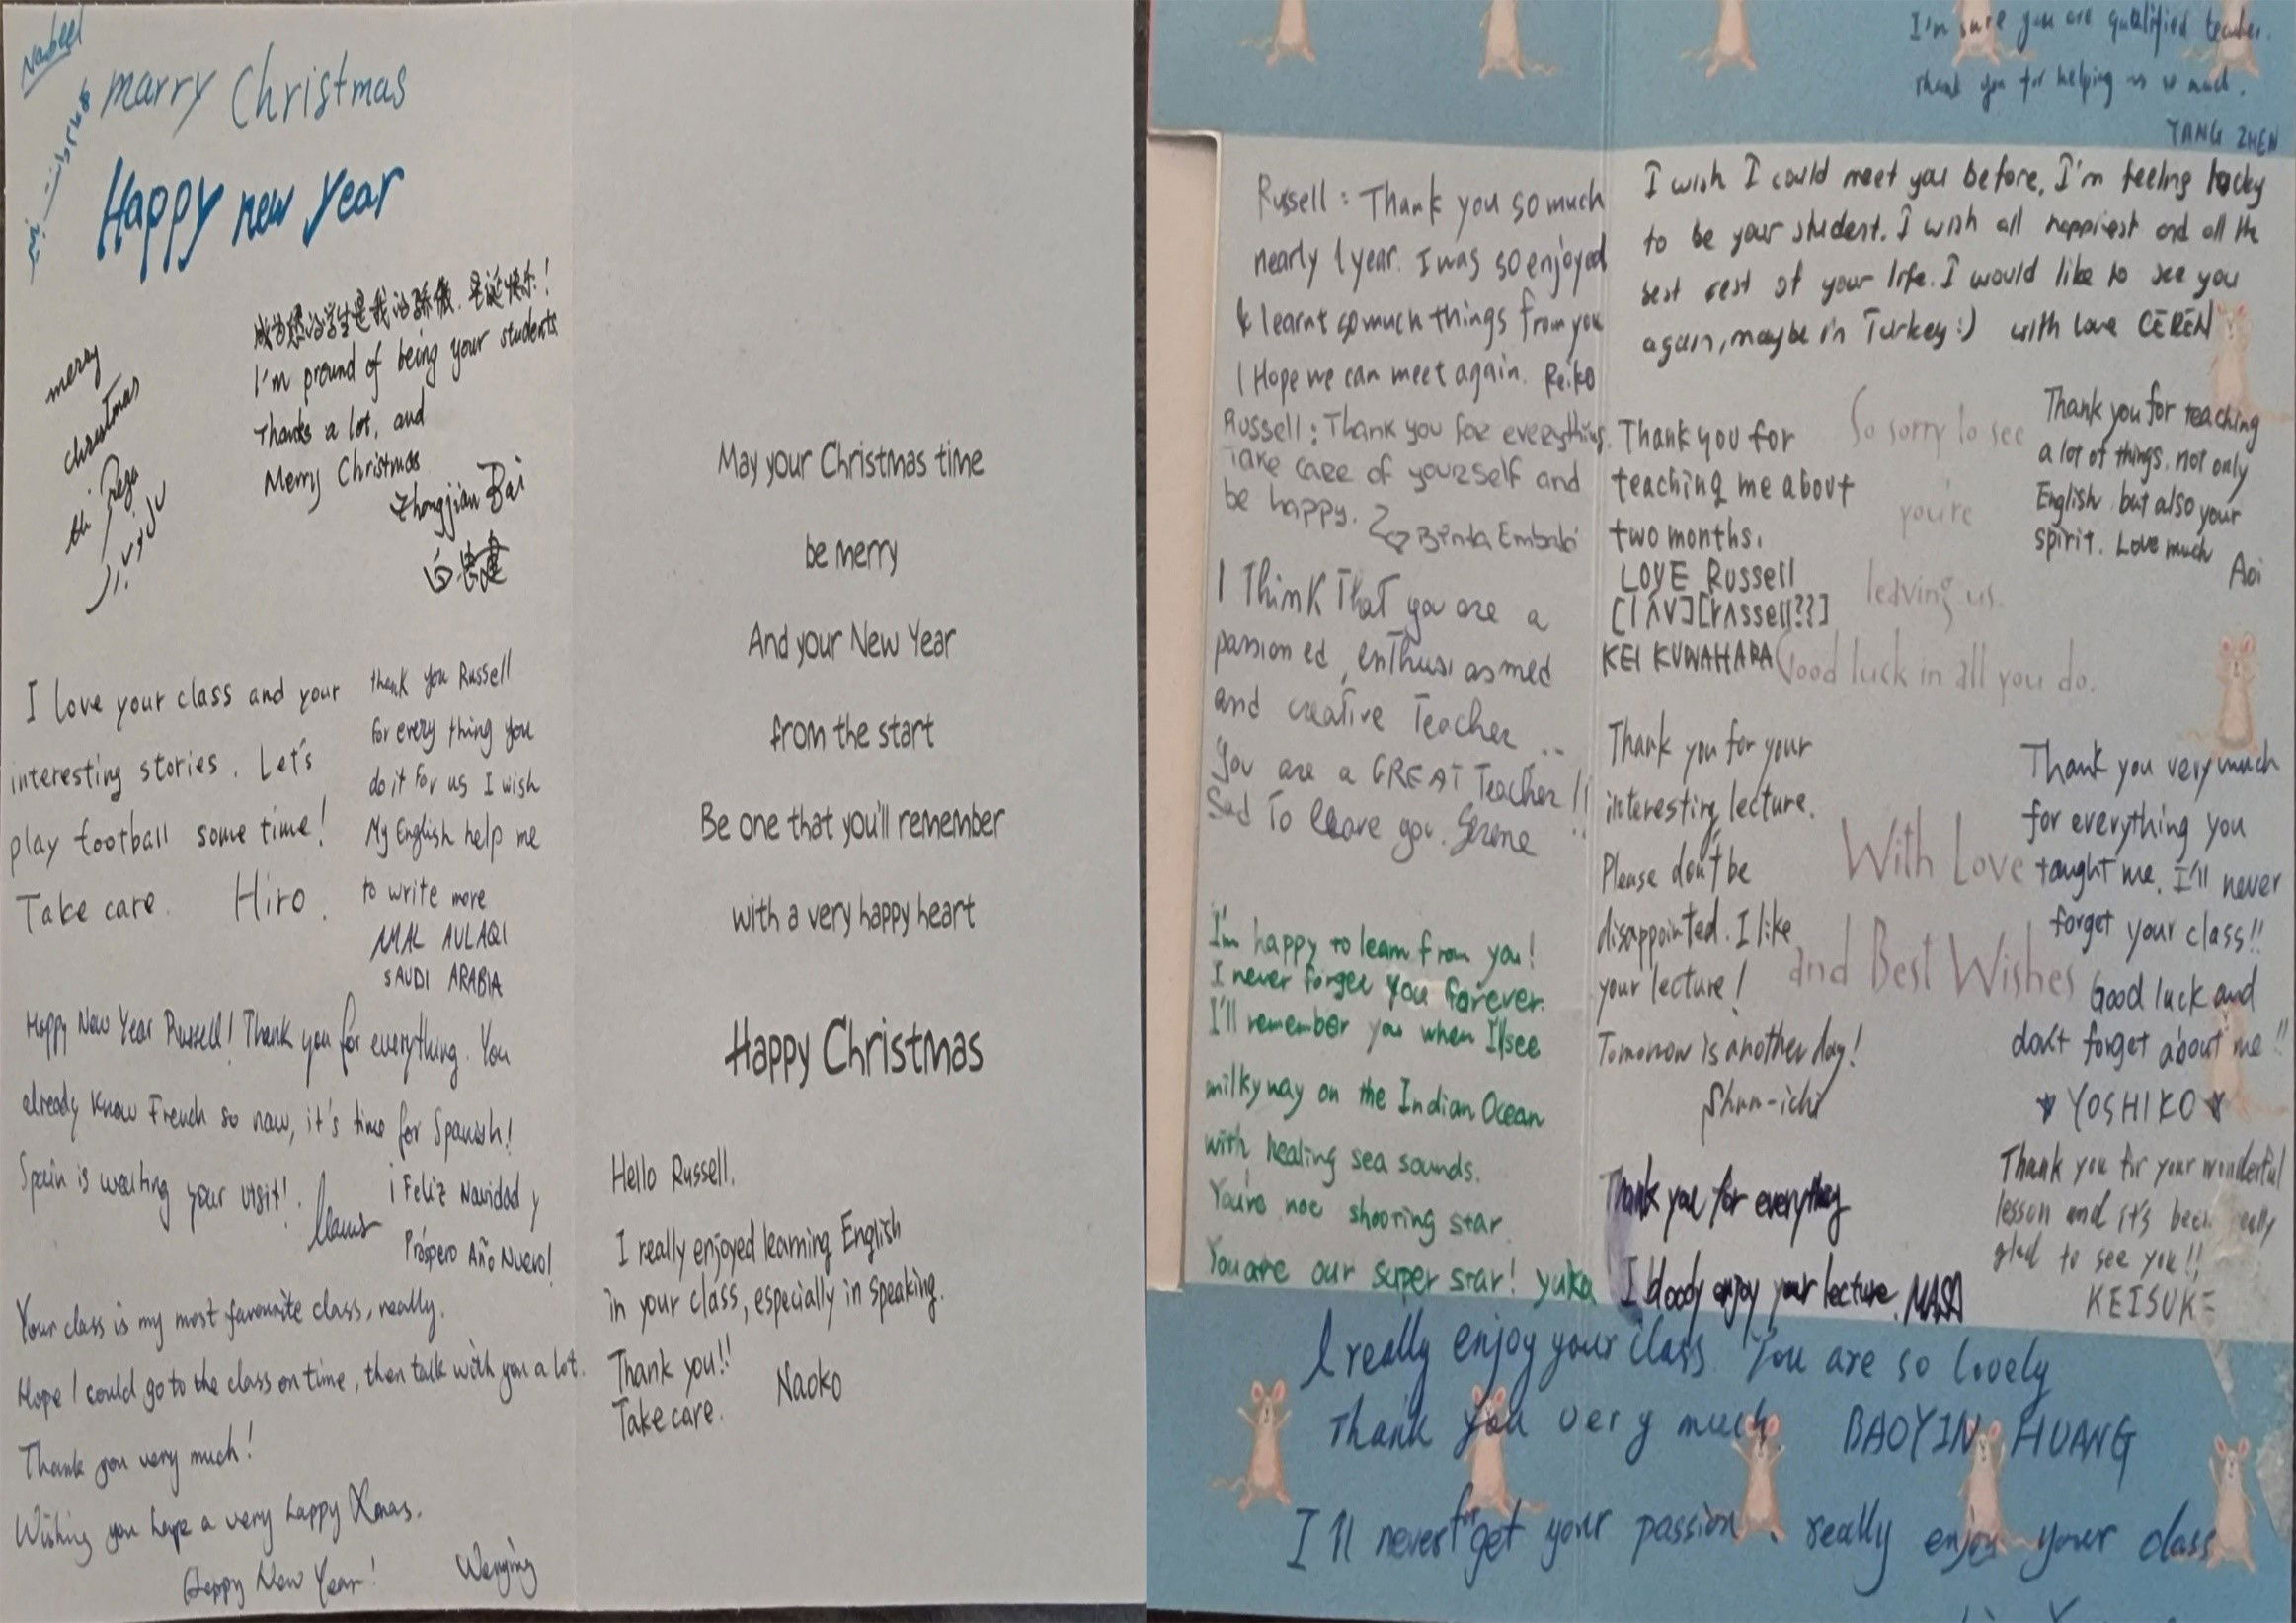 Nabeel
marry Christmas
Happy new year
成为您的学生是我的骄傲.圣诞快乐!
I'm pround of being your students
Thanks a lot, and
Merry Christmas
Zhongjian Bai
白
merry
christmas
I love your class and your
interesting stories. Let's
play football some time!
Take care. Hiro.
thank you Russell
for every thing you
do it for us I wish
My English help me
to write more
AMAL AULAQI
SAUDI ARABIA
Happy New Year Russell! Thank you for everything. You
already know French so now, it's time for Spanish!
Spain is waiting your visit!
¡Feliz Navidad y
Próspero Año Nuevo!
Your class is my most favourite class, really.
Hope I could go to the class on time, then talk with you a lot.
Thank you very much!
Wishing you have a very happy Xmas.
Happy New Year! Wenying
May your Christmas time
be merry
And your New Year
from the start
Be one that you'll remember
with a very happy heart
Happy Christmas
Hello Russell.
I really enjoyed learning English
in your class, especially in speaking.
Thank you!!
Take care. Naoko
I'm sure you are qualified teacher.
Thank you for helping us so much.
YANG ZHEN
Russell: Thank you so much
nearly 1 year. I was so enjoyed
& learnt so much things from you
I Hope we can meet again. Reiko
Russell: Thank you for everything.
Take care of yourself and
be happy.
I Think That you are a
passioned, enthusiasmed
and creative Teacher ..
You are a GREAT Teacher!!
Sad To leave you. Serene
I'm happy to learn from you!
I never forget you forever.
I'll remember you when I'll see
milkyway on the Indian Ocean
with healing sea sounds.
You're not shooting star.
You are our super star! yuka
I wish I could meet you before, I'm feeling locky
to be your student. I wish all happiest and all the
best rest of your life. I would like to see you
again, maybe in Turkey :) with love CEREN
Thank you for
teaching me about
two months.
LOVE Russell
[lʌv][rʌssell??]
KEI KUWAHARA
So sorry to see
you're
leaving us.
Good luck in all you do.
Thank you for teaching
a lot of things, not only
English but also your
spirit. Love much Aoi
Thank you for your
interesting lecture.
Please don't be
disappointed. I like
your lecture!
Tomorrow is another day!
Shun-ichi
With Love
and Best Wishes
Thank you very much
for everything you
taught me. I'll never
forget your class!!
Good luck and
don't forget about me!!
★ YOSHIKO ★
Thank you for everything
I bloody enjoy your lecture. MASA
Thank you for your wonderful
lesson and it's been really
glad to see you!!
KEISUKE
I really enjoy your class. You are so lovely
Thank you very much. BAOYIN HUANG
I'll never forget your passion. really enjoy your class